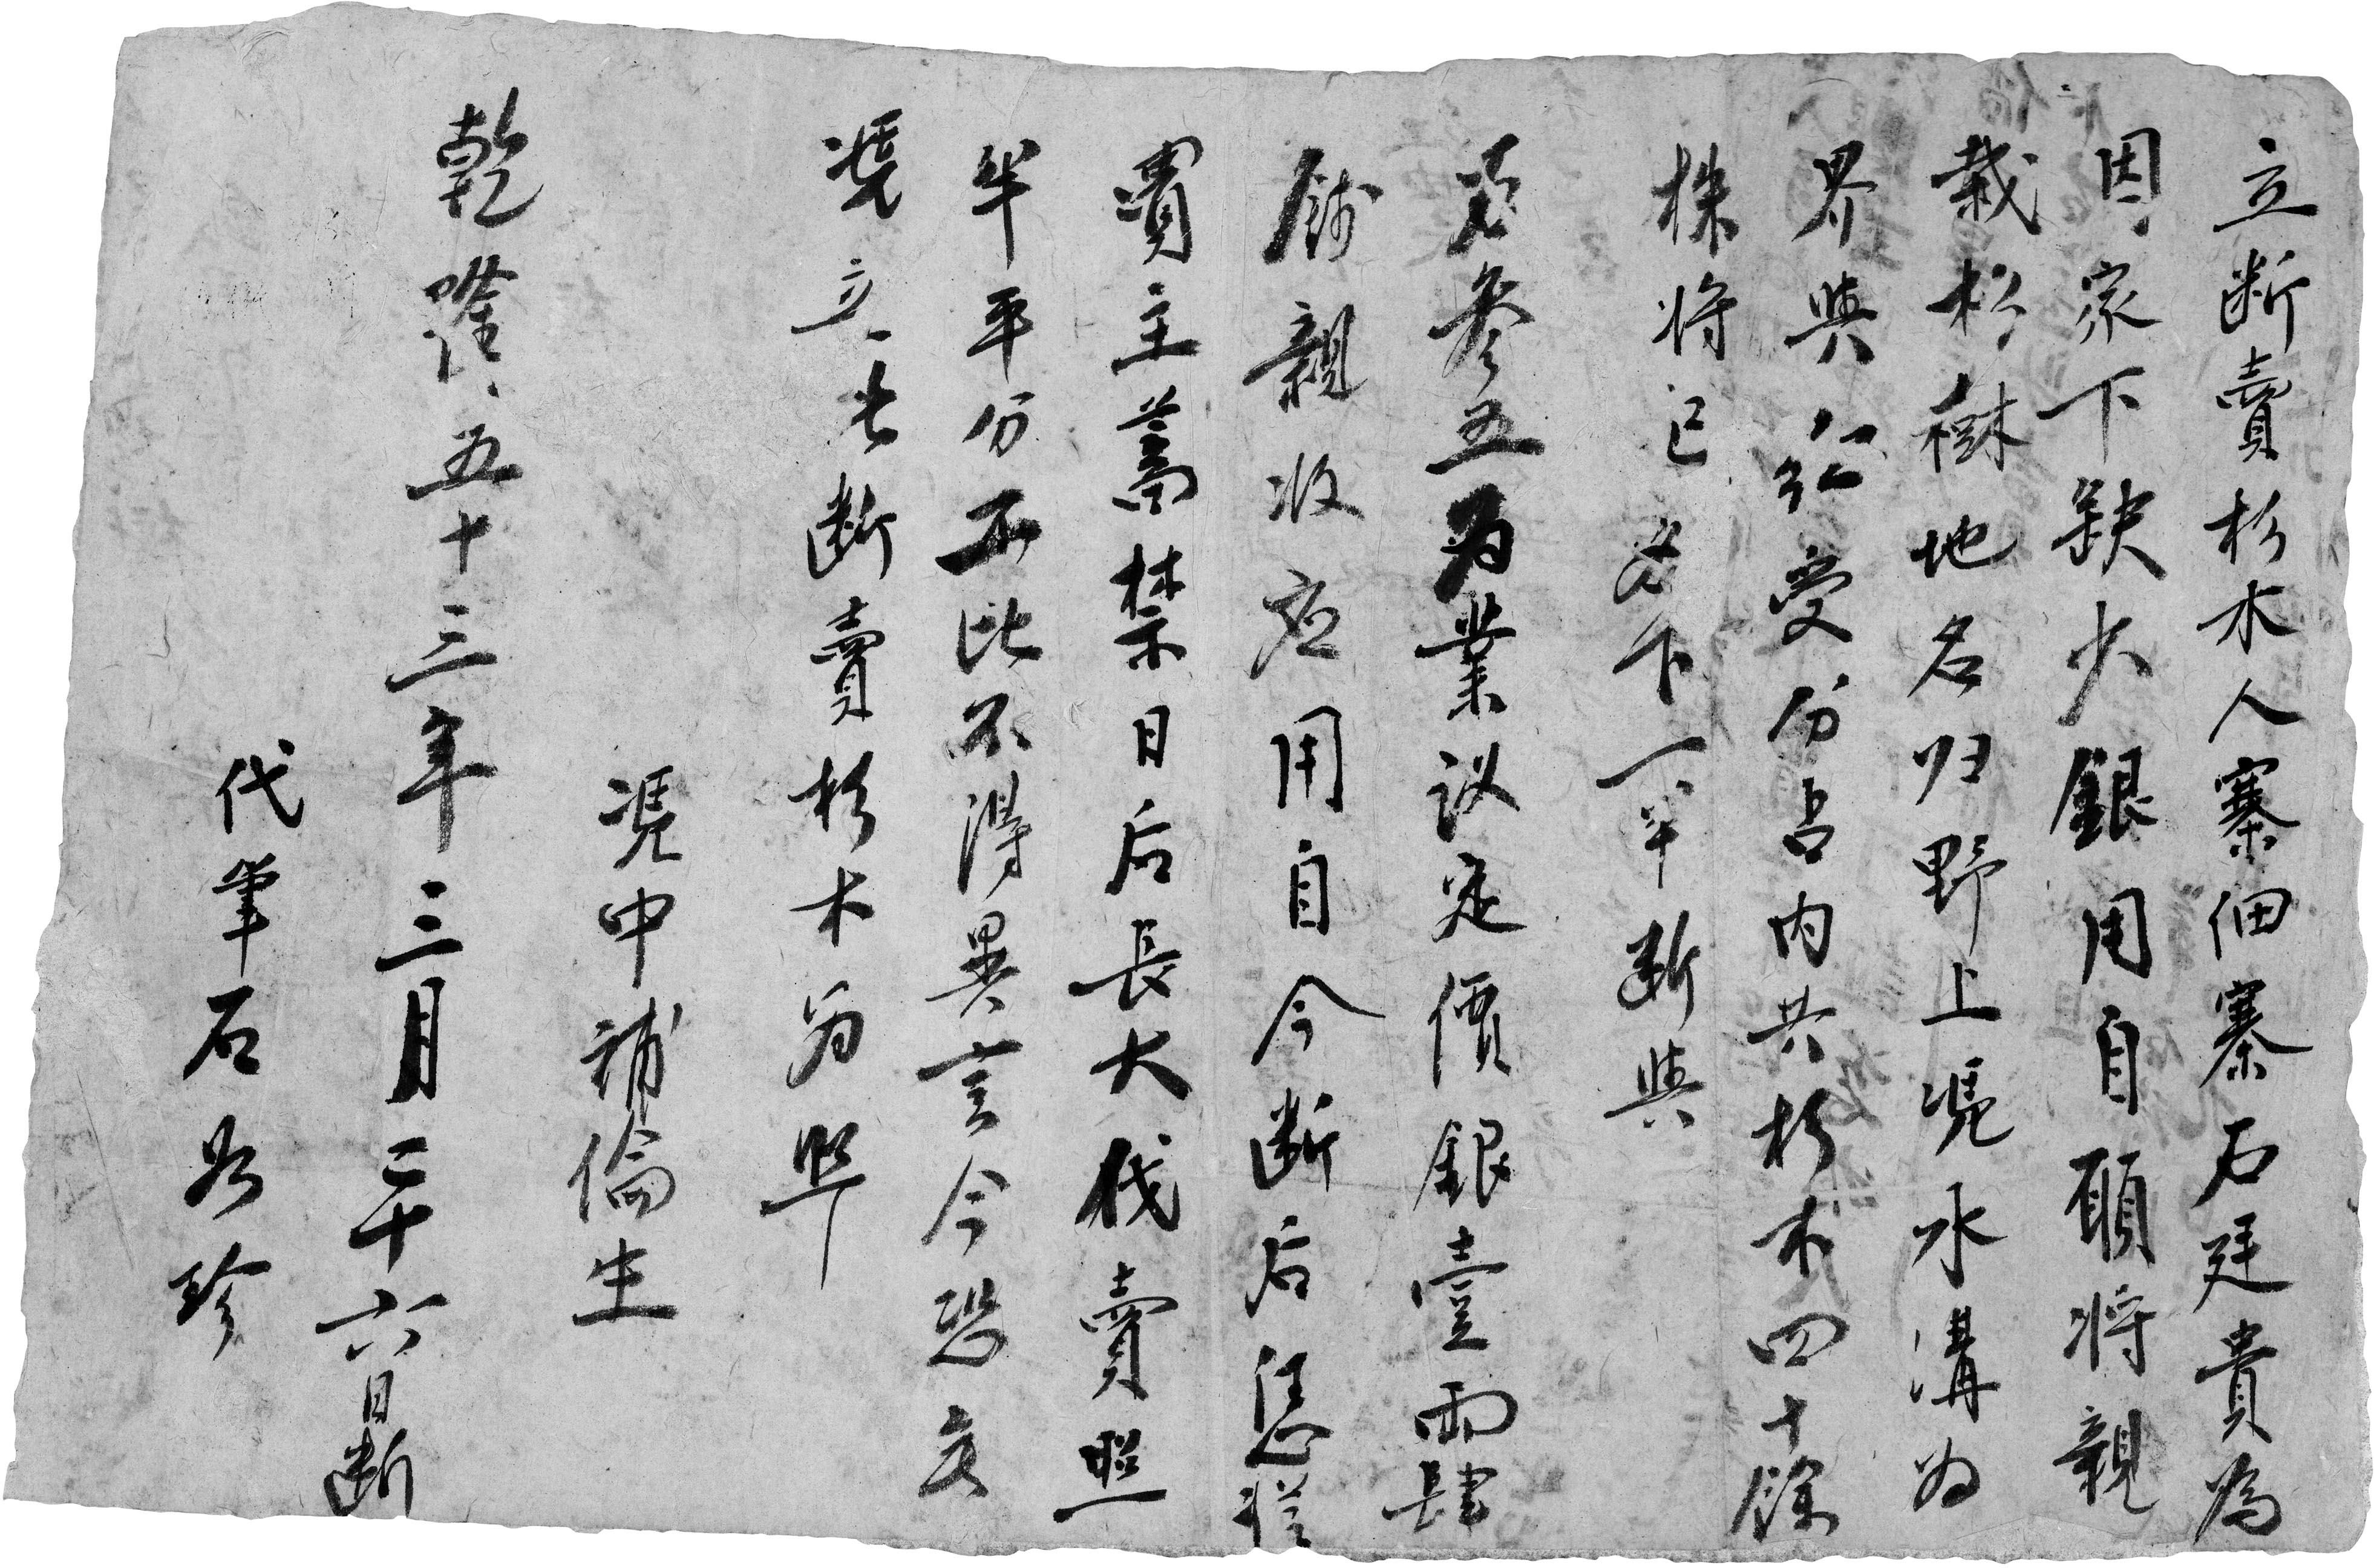 立断賣杉木人寨佃寨石廷貴為
因家下缺少銀用自願將親
栽杉樹地名归野上凴水溝为
界與紅受分占内共杉木四十餘
株将已名下一半断與
石參五为業议定價銀壹両肆
錢親收应用自今断后恁從
買主蓄禁日后長大伐賣照
半平分不比不得異言今恐无
凴立此断賣杉木为照
凴中 補倫生
乾隆五十三年三月二十六日断
代筆石必珍